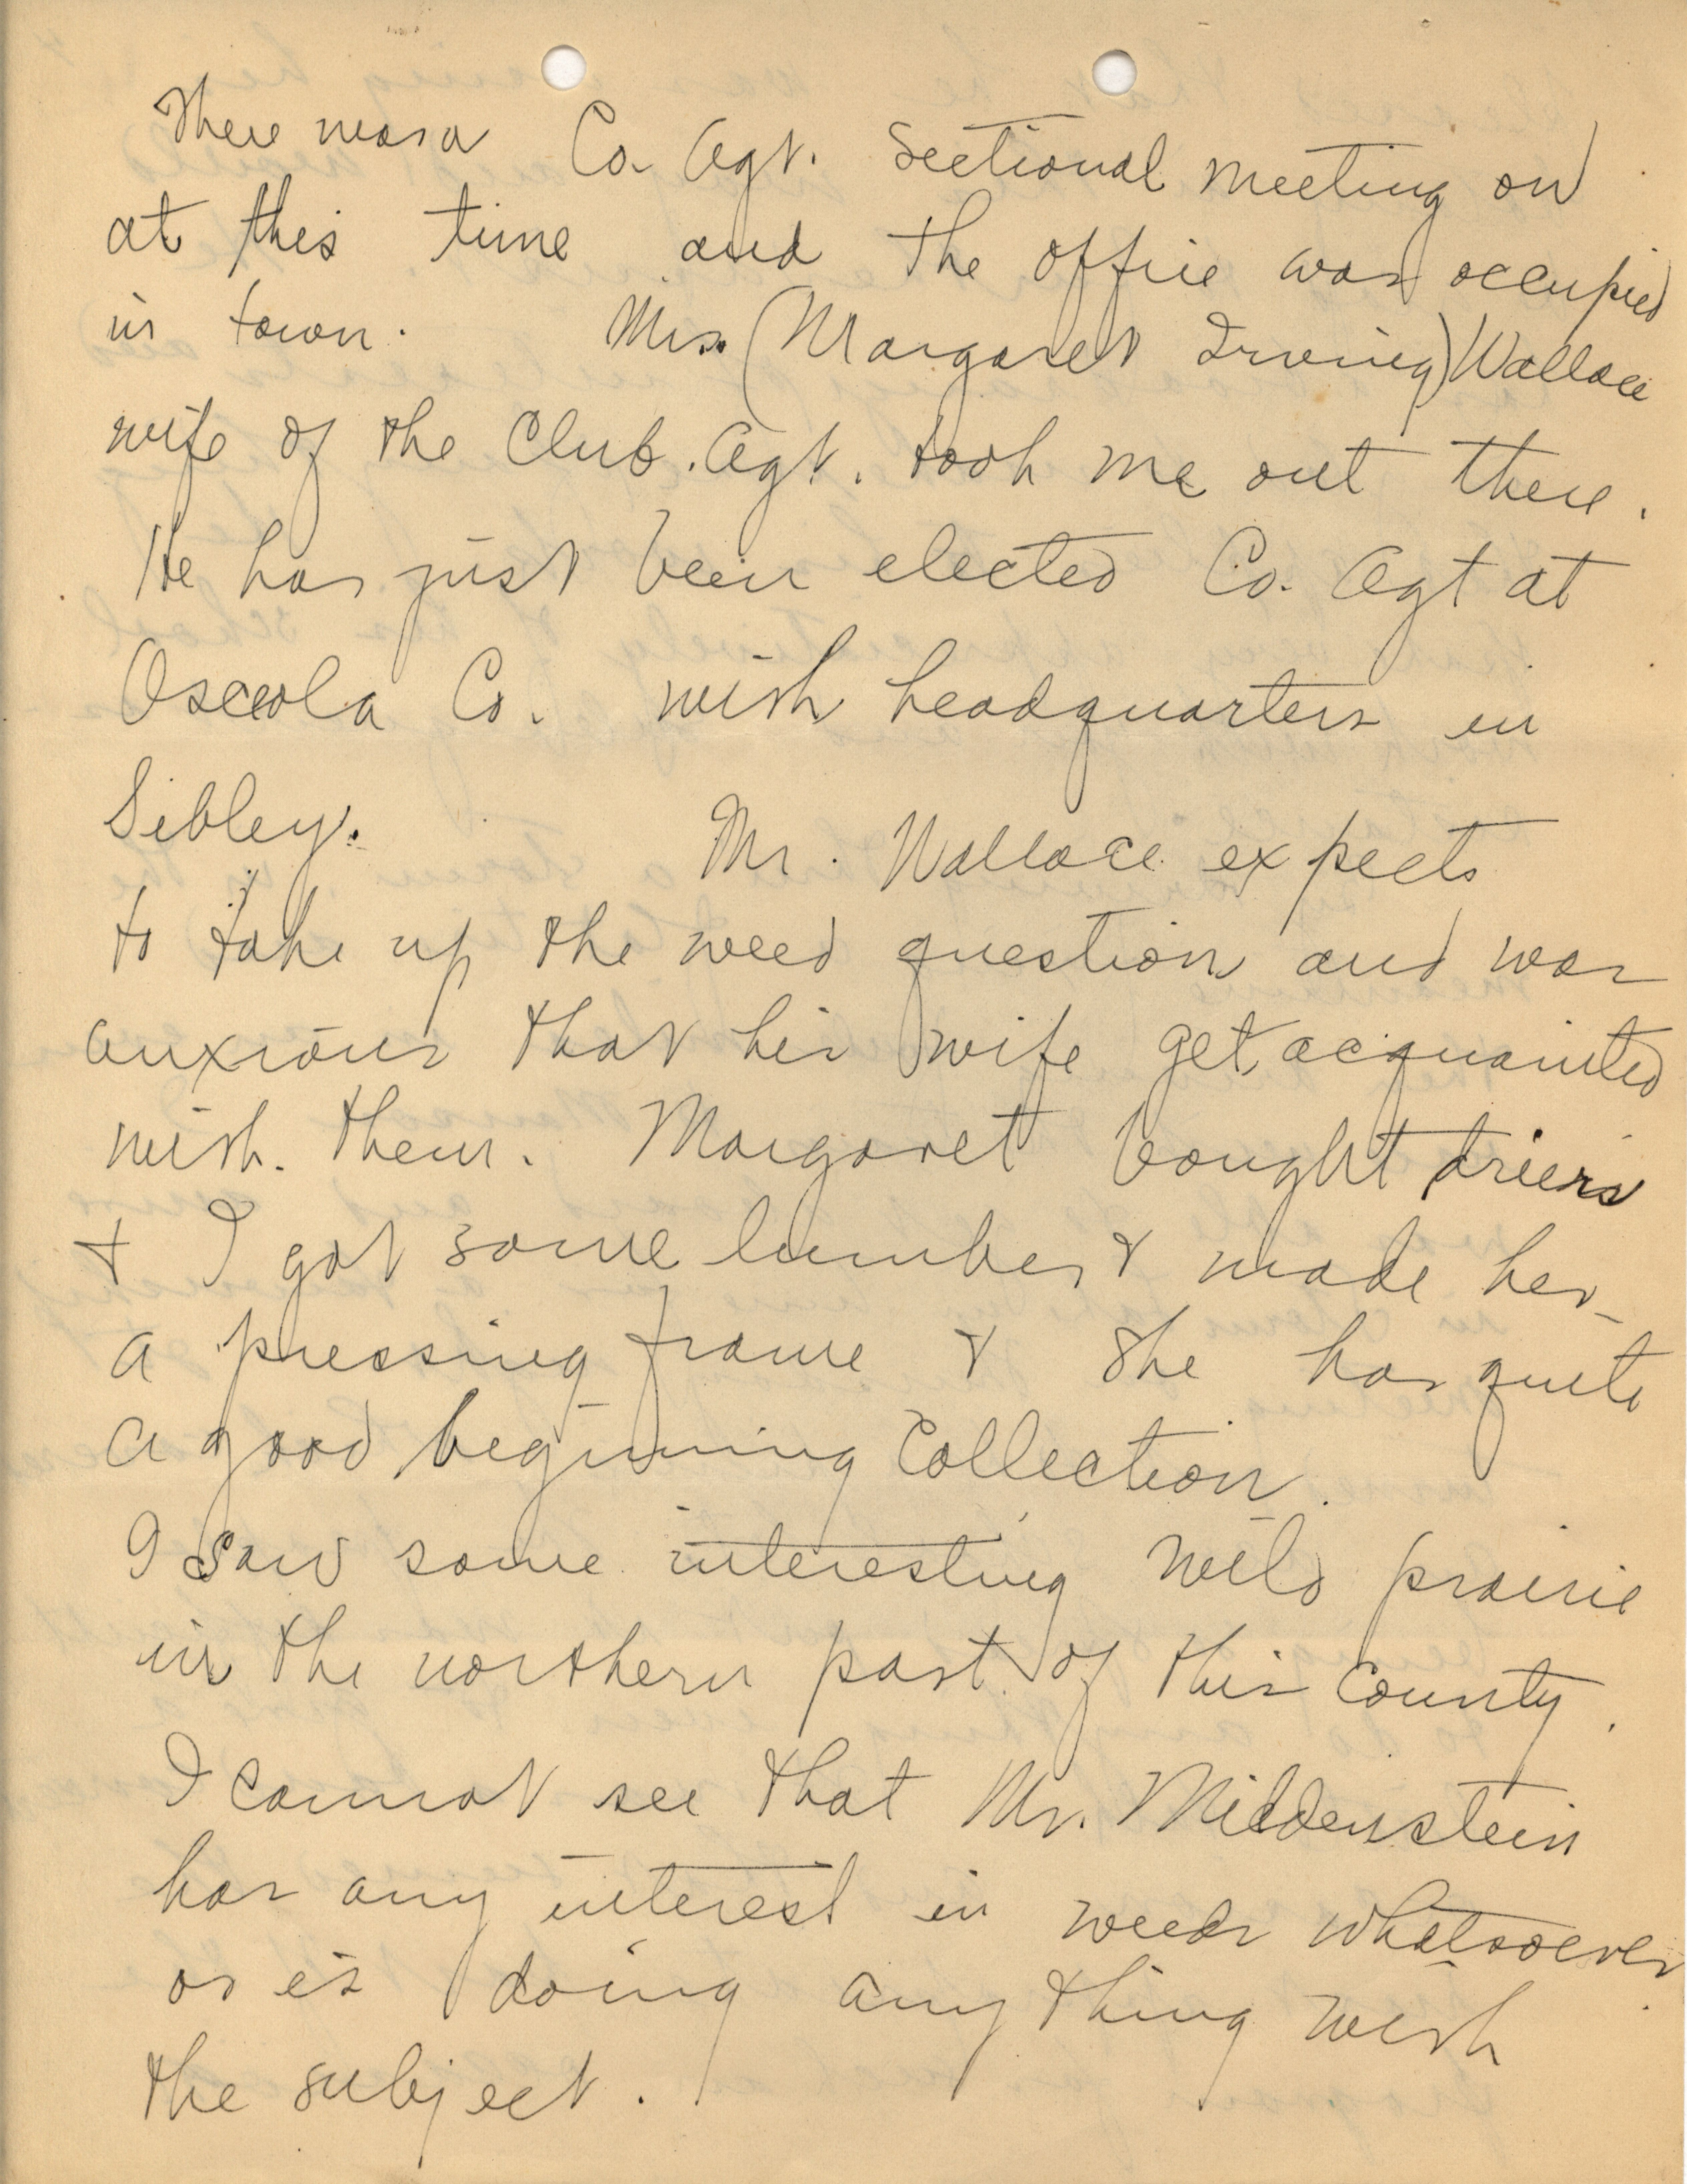 There was a Co. Agt. Sectional meeting on
at this time and the office was occupied
in town. Mrs. (Margaret Irving) Wallace
wife of the Club. Agt. took me out there.
He has just been elected Co. Agt at
Osceola Co. with headquarters in
Sibley. Mr. Wallace expects
to take up the weed question and was
anxious that his wife get acquainted
with them. Margaret bought driers
+ I got some lumber + made her
a pressing frame + she has quite
a good beginning collection.
I saw some interesting wild prairie
in the northern part of this county.
I cannot see that Mr. Middenstein
has any interest in weeds whatsoever
or is doing anything with
the subject.